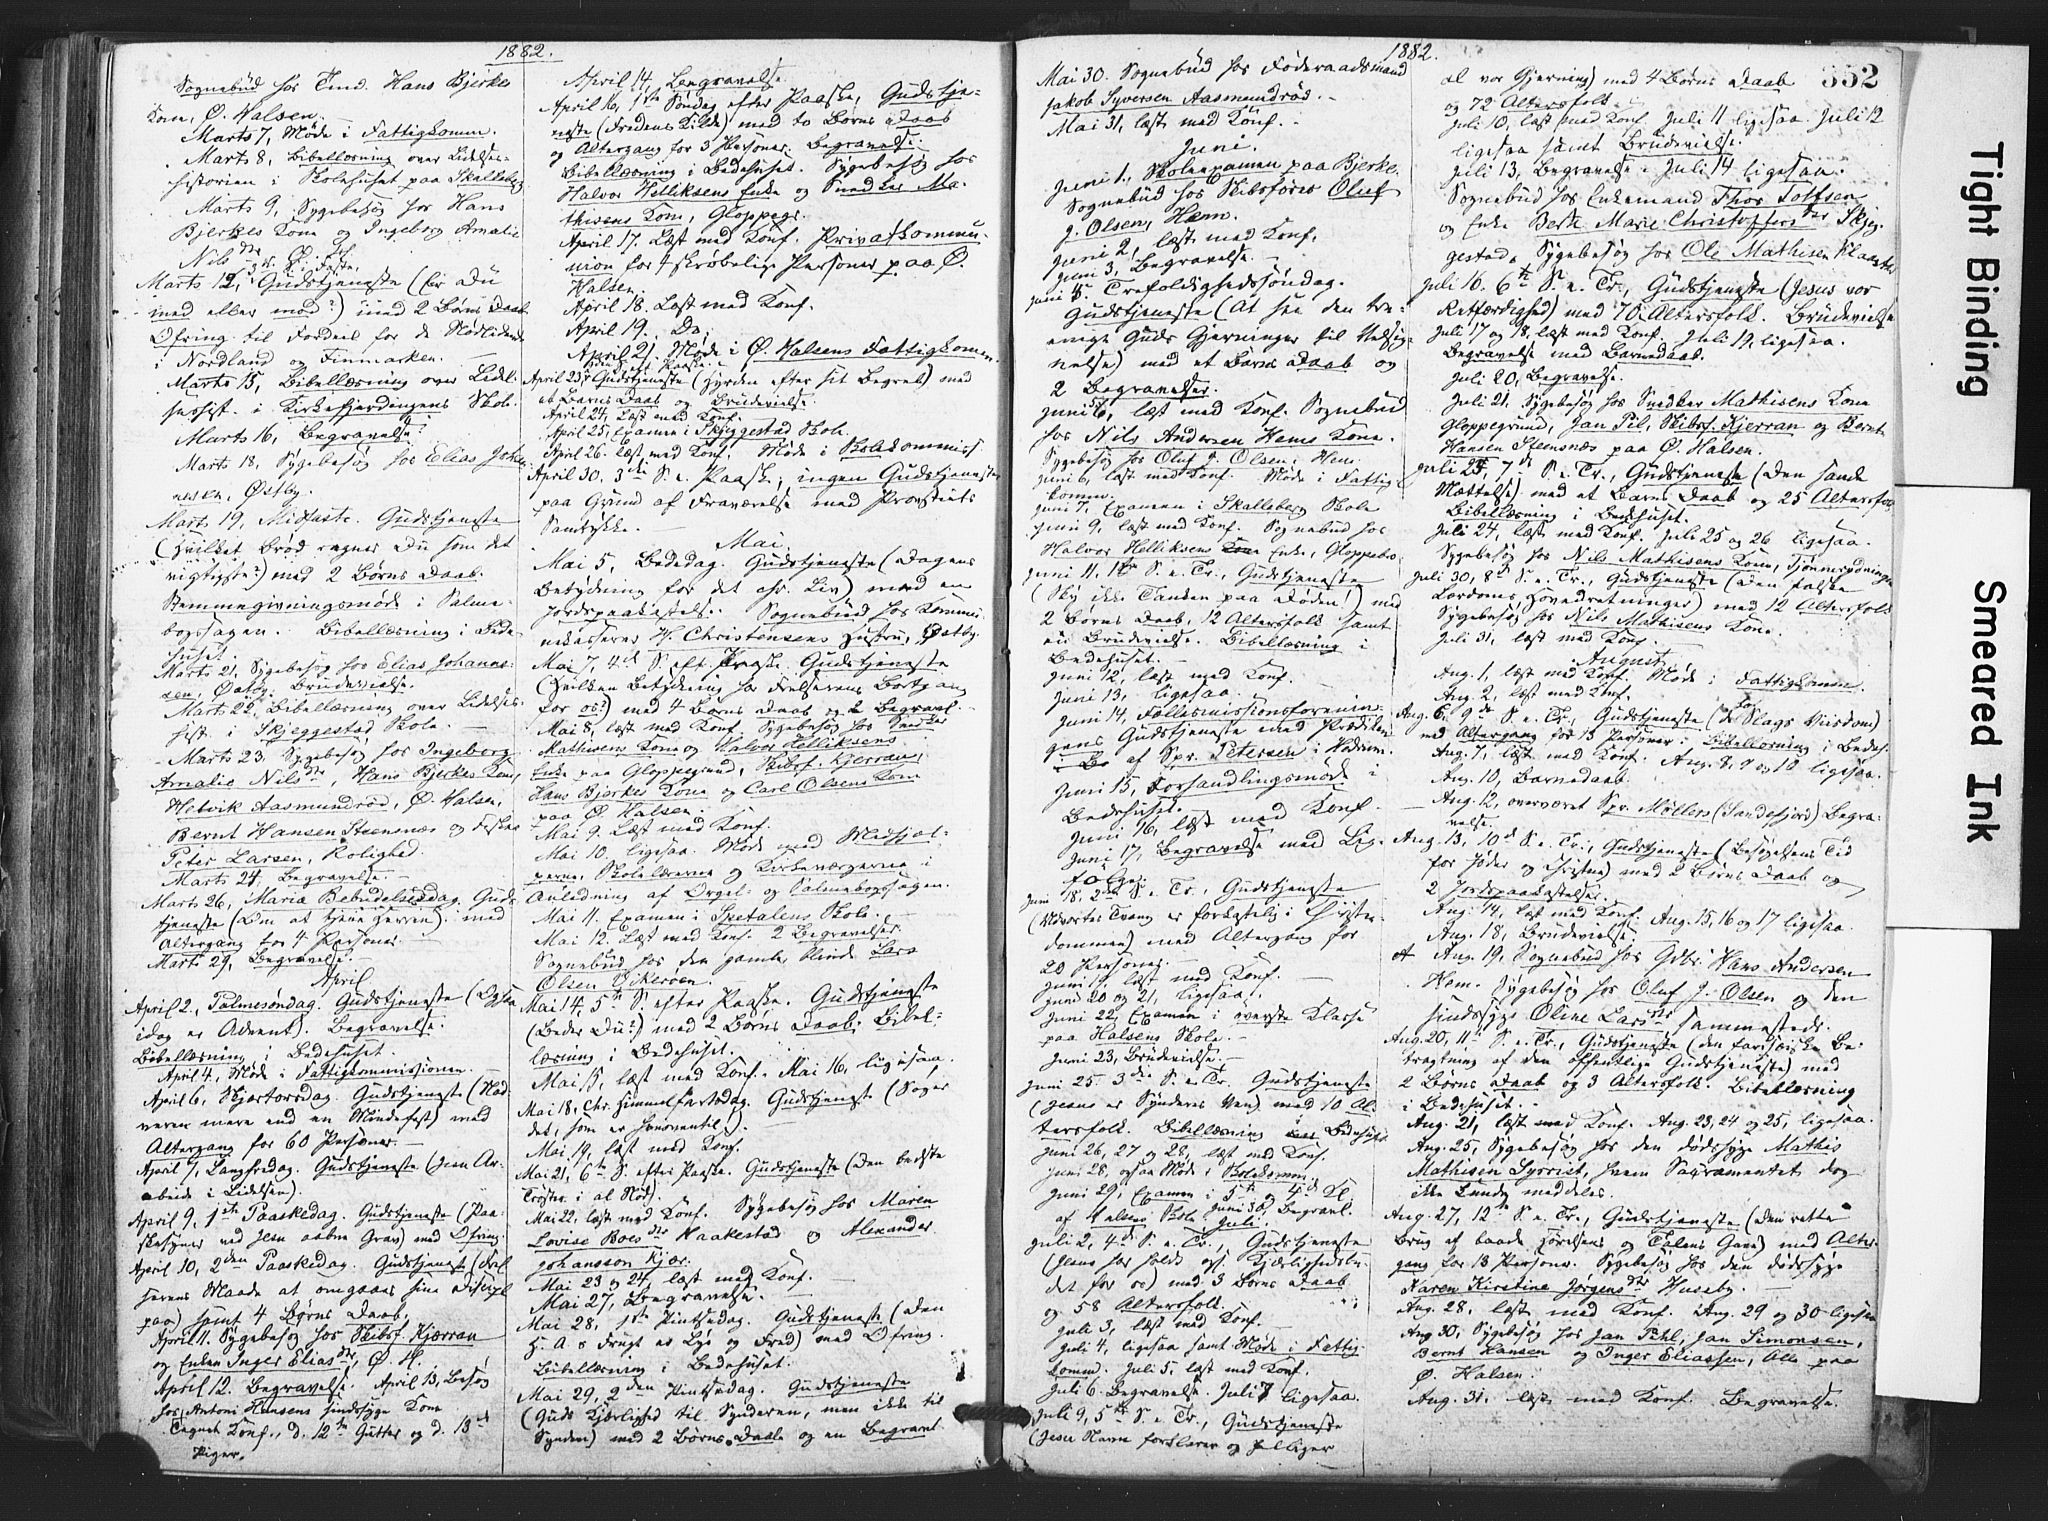 1882.
Sognebud hos Tmd. Hans Bjerkes
Kone, Ø. Halsen.
Marts 7, Møde i Fattigkomm.
Marts 8, Bibellæsning over Lidelses-
historien i Skolehuset paa Skalleberg
Marts 9, Sygebesøg hos Hans
Bjerkes Kone og Ingeborg Amalie
Nilsdtr Ø. H.
3 S. i Faste
Marts 12, Gudstjeneste (Er du
med eller mod?) med 2 Børns Daab
Ofring til Fordeel for de Nødlidende
i Nordland og Finmarken.
Marts 15, Bibellæsning over Lidel-
seshist. i Kirkefjerdingens Skole.
Marts 16, Begravelse.
Marts 18, Sygebesøg hos Elias Johan-
nesen, Østby.
Marts 19, Midfaste. Gudstjeneste
(Hvilket Brød regner Du som det
vigtigste?) med 2 Børns Daab.
Stemmegivningsmøde i Salme-
bogssagen. Bibellæsning i Bede-
huset.
Marts 21, Sygebesøg hos Elias Johanne-
sen, Østby. Brudevielse.
Marts 22, Bibellæsning over Lidelses-
hist. i Skjeggestad Skole.
Marts 23, Sygebesøg hos Ingeborg
Amalie Nilsdtr, Hans Bjerkes Kone,
Helvik Aasmundrød, Ø. Halsen,
Bernt Hansen Steensnæs og Fisker
Peter Larsen, Rolighed.
Marts 24, Begravelse.
Marts 26, Maria Bebudelsesdag. Guds-
tjeneste (Om at tjene Herren) med
Altergang for 4 Personer.
Marts 29, Begravelse.
April
April 2, Palmesøndag. Gudstjeneste (Ogsaa
idag er Advent). Begravelse.
Bibellæsning i Bedehuset.
April 4, Møde i Fattigkommissionen.
April 6, Skjærtorsdag. Gudstjeneste (Nad-
veren mere end en Mindefest) med
Altergang for 60 Personer.
April 7, Langfredag. Gudstjeneste (Jesu Ar-
beide i Lidelsen).
April 9, 1ste Paaskedag. Gudstjeneste (Paa-
skesyner ved Jesu aabne Grav) med Ofring.
April 10, 2den Paaskedag. Gudstjeneste (Frel-
serens Maade at omgaaes sine Disciple
paa) samt 4 Børns Daab.
April 11. Sygebesøg hos Skibsf. Kjerran
og Enken Inger Eliasdtr, Ø. H.
April 12. Begravelse. April 13, Besøg
hos Antoni Hansens sindssyge Kone
Tegnet Konf., d. 12te Gutter og d. 13d
Piger.
April 14, Begravelse.
April 16, 1ste Søndag efter Paaske, Gudstje-
neste (Fredens Kilde) med to Børns Daab
og Altergang for 3 Personer. Begravelse.
Bibellæsning i Bedehuset. Sygebesøg hos
Halvor Helliksens Enke og Snedker Ma-
thisens Kone, Gloppegr.
April 17. Læst med Konf. Privatkommu-
nion for 4 skrøbelige Personer paa Ø.
Halsen.
April 18. Læst med Konf.
April 19. Do.
April 21. Møde i Ø. Halsens Fattigkomm.
2den S. eft. Paaske.
April 23, Gudstjeneste (Hyrden efter sit Begreb) med
et Barns Daab og Brudevielse.
April 24, Læst med Konf.
April 25, Examen i Skjeggestad Skole.
April 26. læst med Konf. Møde i Skolekommiss.
April 30. 3die S. e. Paaske, ingen Gudstjeneste
paa Grund af Fraværelse med Provstiets
Samtykke.
Mai
Mai 5, Bededag. Gudstjeneste (Dagens
Betydning for det chr. Liv) med en
Jordspaakastelse. Sognebud hos Kommu-
nekasserer H. Christensens Hustru, Østby.
Mai 7, 4de S. eft. Paaske. Gudstjeneste
(Hvilken Betydning har Frelserens Bortgang
for os?) med 4 Børns Daab og 2 Begravel.
Mai 8, læst med Konf. Sygebesøg hos Snedker
Mathisens Kone og Halvor Helliksens
Enke paa Gloppegrund, Skibsf. Kjerran,
Hans Bjerkes Kone og Carl Olsens Kone
paa Ø. Halsen.
Mai 9. Læst med Konf.
Mai 10, ligesaa. Møde med Medhjæl-
perne, Skolelærerne og Kirkeværgerne i
Anledning af Orgel- og Salmebogssagen.
Mai 11. Examen i Spetalens Skole.
Mai 12. Læst med Konf. 2 Begravelser
Sognebud hos den gamle blinde Lars
Olsen Vikerøen.
Mai 14, 5te S. efter Paaske. Gudstjeneste
(Beder Du?) med 2 Børns Daab. Bibel-
læsning i Bedehuset.
Mai 15, læst med Konf. Mai 16, ligesaa.
Mai 18, Chr. Himmelfartsdag. Gudstjeneste (Søger
det, som er hmoventil).
Mai 19, læst med Konf.
Mai 21, 6te S. efter Paaske. Gudstjeneste (Den bedste
Trøster i al Nød).
Mai 22, læst med Konf. Sygebesøg hos Maren
Lovise Boesdtr Haakestad og Alexander
Johansson Kjær.
Mai 23 og 24, læst med Konf.
Mai 27, Begravelse.
Mai 28, 1ste Pintsedag. Gudstjeneste (Den
H. A s Frugt er Lys og Fred) med Ofring.
Bibellæsning i Bedehuset.
Mai 29, 2den Pintsedag. Gudstjeneste
(Guds Kjærlighed til Synderen, men ikke til
Synden) med 2 Børns Daab og en Begravel.
1882.
352
Mai 30. Sognebud hos Føderaadsmand
Jakob Syversen Aasmundrød.
Mai 31, læst med Konf.
Juni.
Juni 1, Skoleexamen paa Bjerke.
Sognebud hos Skibsfører Oluf
J. Olsen, Hem.
Juni 2, læst med Konf.
Juni 3, Begravelse.
Juni 4, Trefoldighedssøndag.
Gudstjeneste (At see den tre-
enige Guds Gjerninger til Velsig-
nelse) med et Barns Daab og
2 Begravelser.
Juni 5, læst med Konf. Sognebud
hos Nils Andersen Hems Kone.
Sygebesøg hos Oluf J. Olsen, Hem.
Juni 6, læst med Konf. Møde i Fattig-
komm.
Juni 7, Examen i Skalleberg Skole
Juni 9, læst med Konf. Sognebud hos
Halvor Helliksens Enke, Gloppebo.
Juni 11, 1ste S. e. Tr., Gudstjeneste
(Sky ikke Tanken paa Døden!) med
2 Børns Daab, 12 Altersfolk samt
en Brudevielse. Bibellæsning i
Bedehuset.
Juni 12, læst med Konf.
Juni 13, ligesaa.
Juni 14, Fællesmissionsforenin-
gens Gudstjeneste med Prædiken
af Spr. Petersen i Hedrum.
Juni 15, Forhandlingsmøde i
Bedehuset.
Juni 16, læst med Konf.
Juni 17, Begravelse med Lig-
følge.
Juni 18, 2den S. e. Tr., Gudstjeneste
(Udvortes Tvang er forkastelig i Christen-
dommen) med Altergang for
20 Personer.
Juni 19, læst med Konf.
Juni 20 og 21, ligesaa.
Juni 22, Examen i øverste Klasse
paa Halsens Skole.
Juni 23, Brudevielse.
Juni 25, 3die S. e. Tr., Gudstjeneste
(Jesus er Synderes Ven) med 10 Al-
tersfolk. Bibellæsning i Bedehuset
Juni 26, 27 og 28, læst med Konf.
Juni 28, ogsaa Møde i Skolekomm.
Juni 29, Examen i 5te og 4de Kl.
af Halsens Skole. Juni 30, Begravel.
Juli.
Juli 2, 4de S. e. Tr., Gudstjeneste
(Jesus har holdt ops. Kjærlighedsbu-
det for os) med 3 Børns Daab
og 58 Altersfolk.
Juli 3, læst med Konf.
Juli 4, ligesaa samt Møde i Fattig-
komm. Juli 5, læst med Konf.
Juli 6. Begravelse. Juli 7 ligesaa.
Juli 9, 5te S. e. Tr., Gudstjeneste
(Jesu Navn forklarer og helliger
1882.
al vor Gjerning) med 4 Børns Daab
og 72 Altersfolk.
Juli 10, læst med Konf. Juli 11 ligesaa. Juli 12
ligesaa samt Brudevielse.
Juli 13, Begravelse. Juli 14 ligesaa.
Sognebud hos Enkemand Thor Tollfsen
og Enke Berth. Marie Christoffersdtr Skjeg-
gestad. Sygebesøg hos Ole Mathisen Klaastad
Juli 16. 6te S. e. Tr., Gudstjeneste (Jesus vor
Retfærdighed) med 70 Altersfolk. Brudevielse
Juli 17 og 18, læst med Konf. Juli 19, ligesaa.
Begravelse med Barnedaab.
Juli 20, Begravelse.
Juli 21, Sygebesøg hos Snedker Mathisens Kone
Gloppegrund, Jan Pil, Skibsf. Kjerran og Bernt
Hansen Steensnæs paa Ø. Halsen.
Juli 23, 7de S. e. Tr., Gudstjeneste (Den sande
Mættelse) med et Barns Daab og 25 Altersfolk
Bibellæsning i Bedehuset.
Juli 24, læst med Konf. Juli 25 og 26 ligesaa.
Sygebesøg hos Nils Mathisens Kone, Tjønnerydningen
Juli 30, 8de S. e. Tr., Gudstjeneste (Den falske
Lærdoms Hovedretninger) med 12 Altersfolk
Sygebesøg hos Nils Mathisens Kone.
Juli 31, læst med Konf.
August
Aug. 1, læst med Konf. Møde i Fattigkomm.
Aug. 2, læst med Konf.
Aug. 6, 9de S. e. Tr., Gudstjeneste (To Slags Viisdom)
med Altergang for 13 Personer. Bibellæsning i Bedeh.
Aug. 7, læst med Konf. Aug. 8, 9 og 10 ligesaa.
Aug. 10, Barnedaab.
Aug. 12, overværet Spr. Møllers (Sandefjord) Begra-
velse.
Aug. 13, 10de S. e. Tr., Gudstjeneste (Besøgelsens Tid
for Jøder og Christne) med 2 Børns Daab og
2 Jordspaakastelser.
Aug. 14, læst med Konf. Aug. 15, 16 og 17 ligesaa.
Aug. 18, Brudevielse.
Aug. 19, Sognebud hos Gdbr. Hans Andersen
Hem. Sygebesøg hos Oluf J. Olsen og den
sindssyge Oline Larsdtr sammesteds.
Aug. 20, 11te S. e. Tr., Gudstjeneste (den farisæiske Be-
tragtning af den offentlige Gudstjeneste) med
2 Børns Daab og 3 Altersfolk. Bibellæsning
i Bedehuset.
Aug. 21, læst med Konf. Aug. 23, 24 og 25, ligesaa.
Aug. 25, Sygebesøg hos den dødssyge Mathis
Mathisen Syrrist, hvem Sacramentet dog
ikke kunde meddeles.
Aug. 27, 12te S. e. Tr., Gudstjeneste (Den rette
Brug af baade Hørelsens og Talens Gave) med Alter-
gang for 13 Personer. Sygebesøg hos den dødssyge
Karen Kirstine Jørgensdtr Huseby.
Aug. 28, læst med Konf. Aug. 29 og 30 ligesaa
Aug. 30, Sygebesøg hos Jan Pihl, Jan Simonsen,
Bernt Hansen og Inger Eliassen, Alle paa
Ø. Halsen.
Aug. 31. læst med Konf. Begravelse.
Tight Binding
Smeared Ink